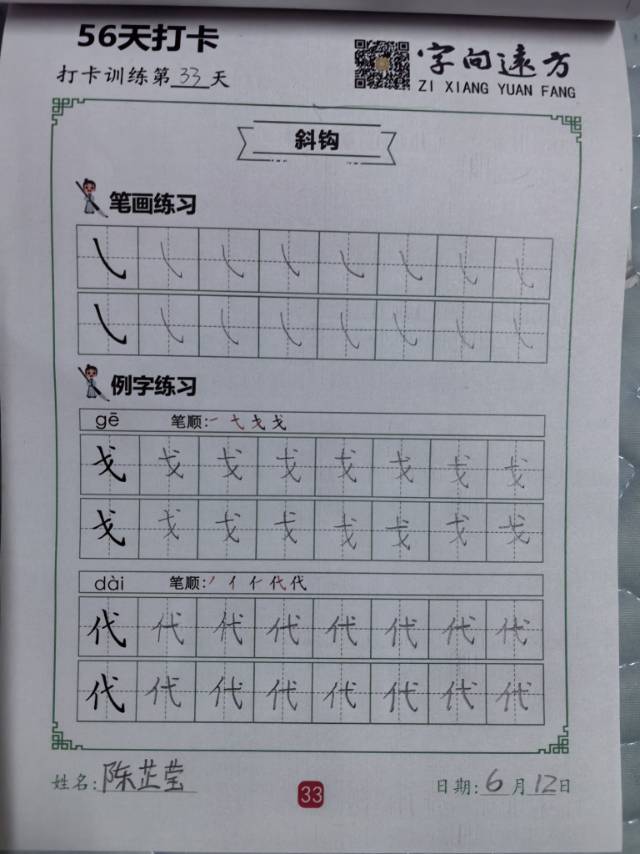 56天打卡
打卡训练第33天
字向远方
ZI XIANG YUAN FANG
斜钩
笔画练习
㇂ ㇂ ㇂ ㇂ ㇂ ㇂ ㇂ ㇂
㇂ ㇂ ㇂ ㇂ ㇂ ㇂ ㇂ ㇂
例字练习
gē 笔顺:一 七 戈 戈
戈 戈 戈 戈 戈 戈 戈 戈
戈 戈 戈 戈 戈 戈 戈 戈
dài 笔顺:丿 亻 仁 代 代
代 代 代 代 代 代 代 代
代 代 代 代 代 代 代 代
姓名:陈芷莹 33 日期:6月12日